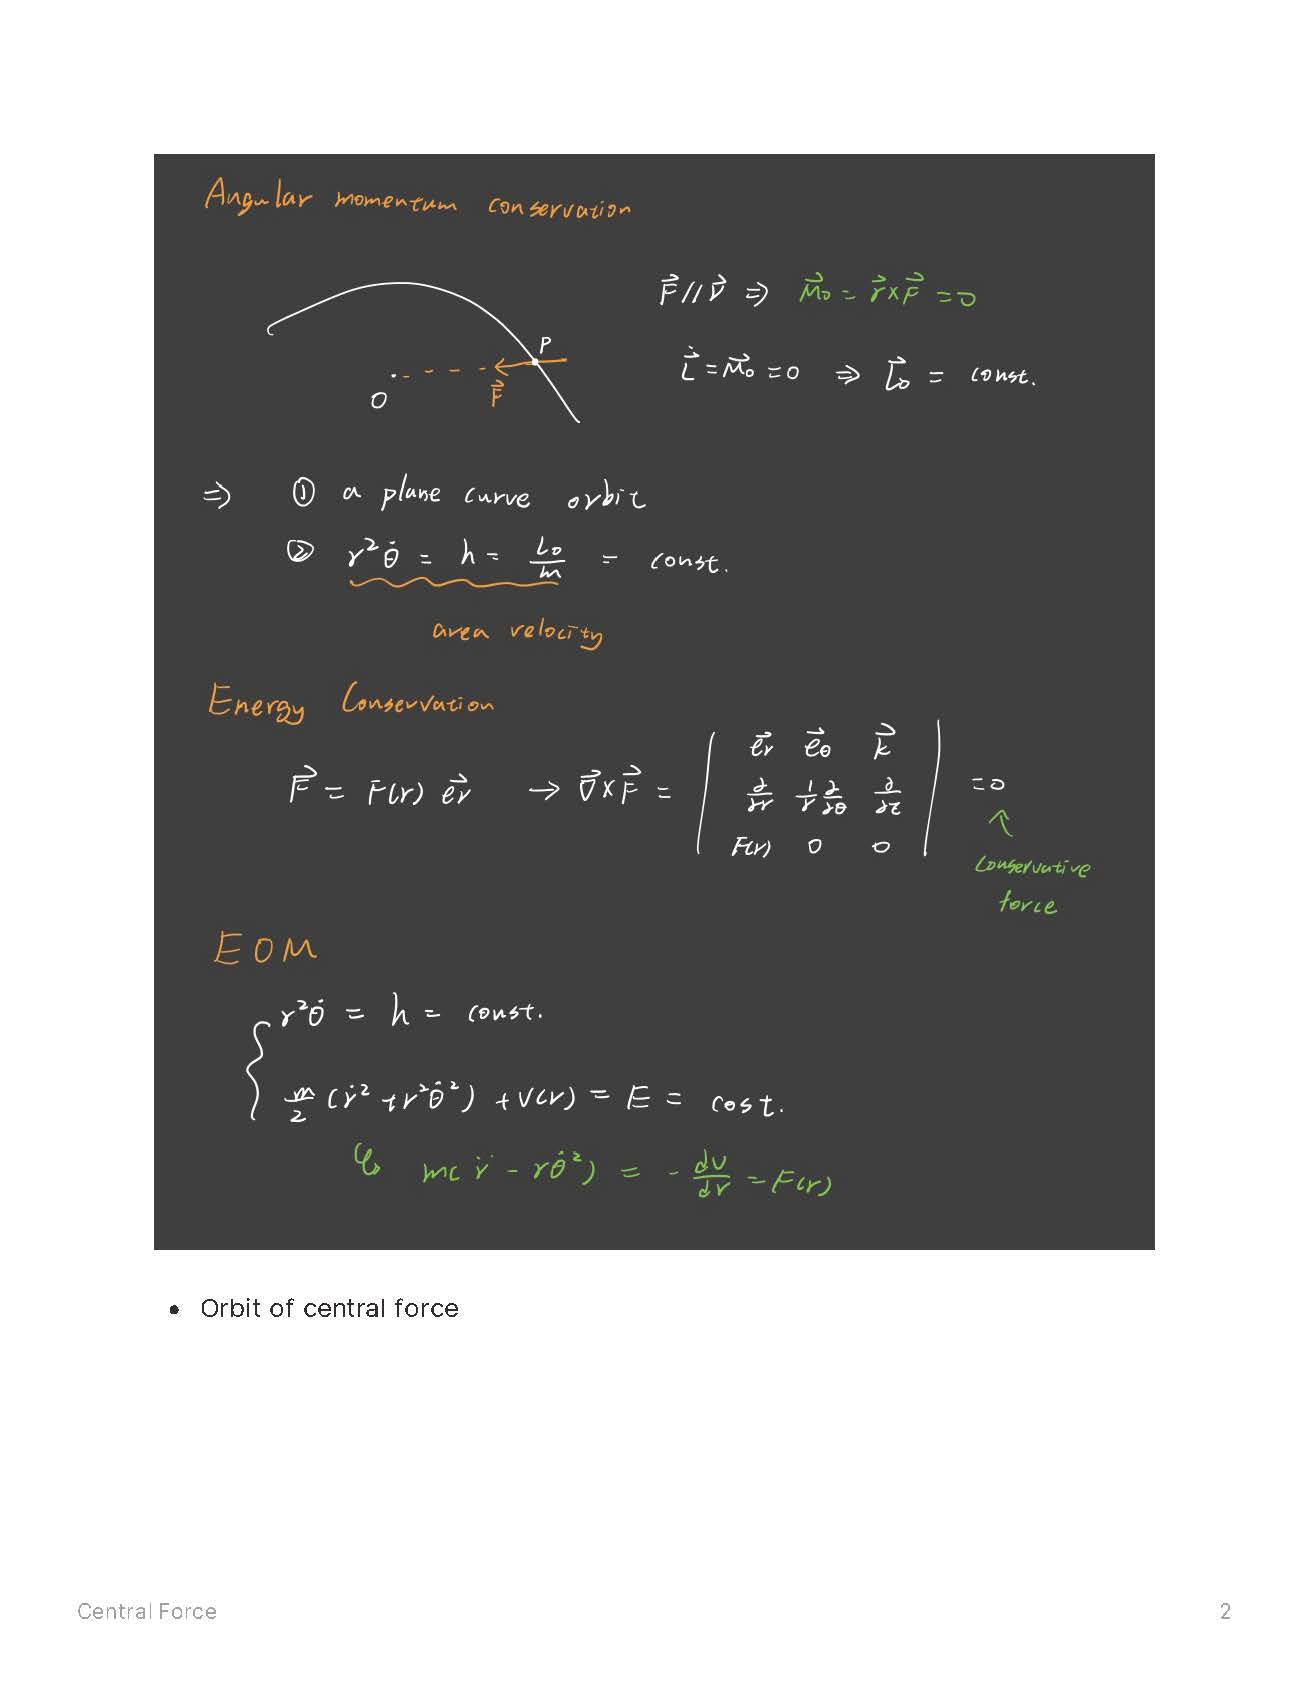 Angular momentum conservation
F⃗ // r⃗ ⇒ M⃗₀ = r⃗ × F⃗ = 0
P
O
F⃗
L⃗̇ = M⃗₀ = 0 ⇒ L⃗₀ = const.
⇒ ① a plane curve orbit
② r²θ̇ = h = L₀/m = const.
area velocity
Energy Conservation
F⃗ = F(r) e⃗r → ∇⃗ × F⃗ = | e⃗r e⃗θ k⃗ |
| ∂/∂r 1/r ∂/∂θ ∂/∂z | = 0
| F(r) 0 0 |
conservative
force
EOM
r²θ̇ = h = const.
m/2 (ṙ² + r²θ̇²) + V(r) = E = cost.
↳ m(r̈ - rθ̇²) = - dV/dr = F(r)
• Orbit of central force
Central Force 2